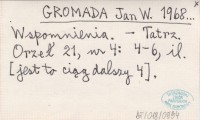 GROMADA Jan W. 1968...
Wspomnienia. — Tatrz.
Orzeł 21, nr 4: 4-6, il.
[jest to ciąg dalszy 4].
BF/OB/0834